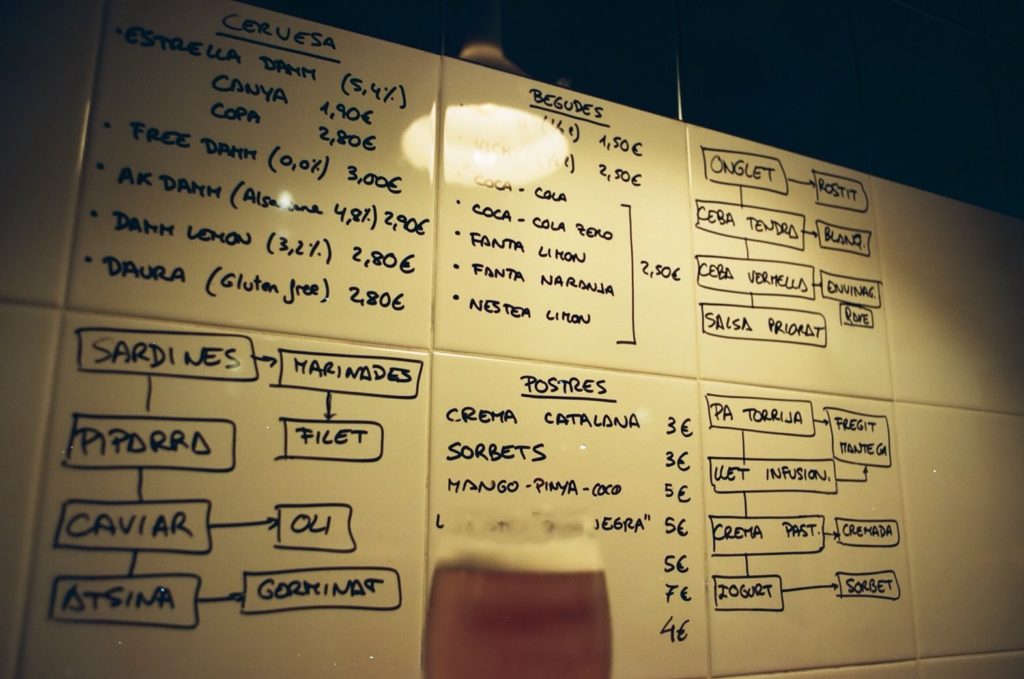 CERVESA
• ESTRELLA DAMM (5,4%)
CANYA 1,90€
COPA 2,80€
• FREE DAMM (0,0%) 3,00€
• AK DAMM 4,8%) 2,90€
• DAMM LEMON (3,2%) 2,80€
• DAURA (Gluten free) 2,80€
BEGUDES
1,50€
VICH 2,50€
COCA-COLA
• COCA-COLA ZERO
• FANTA LIMON
• FANTA NARANJA
• NESTEA LIMON
2,50€
ONGLET ROSTIT
CEBA TENDRA BLANQ.
CEBA VERMELLA ENVINAG.
RAVE
SALSA PRIORAT
SARDINES MARINADES
PIPARRA FILET
CAVIAR OLI
ATSINA GERMINAT
POSTRES
CREMA CATALANA 3€
SORBETS 3€
MANGO-PINYA-COCO 5€
NEGRA" 5€
5€
7€
4€
PA TORRIJA FREGIT MANTEGA
LLET INFUSION.
CREMA PAST. CREMADA
IOGURT SORBET